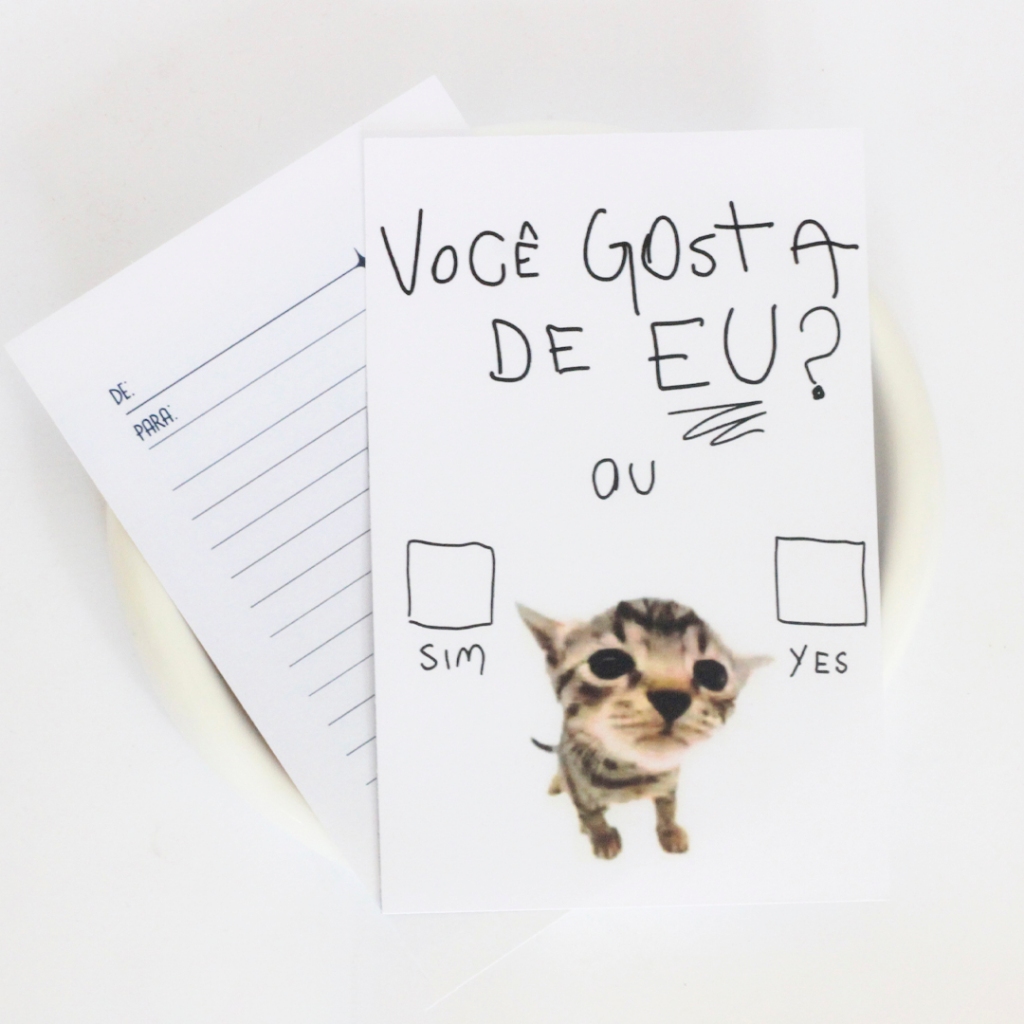 DE:
PARA:
VOCÊ GOSTA
DE EU?
OU
SIM
YES